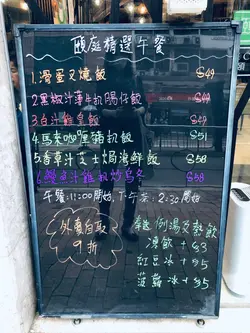 頤庭精選午餐
1.滑蛋叉燒飯 $49
2.黑椒汁薄牛扒腸仔飯 $49
3.白汁雞皇飯 $49
4.馬來咖喱豬扒飯 $51
5.香草汁芝士焗海鮮飯 $58
6.鰻魚汁雞扒炒烏冬 $58
午餐:11:00開始,下午茶:2:30開始
外賣自取
9折
奉送例湯或熱飲
凍飲+$3
紅豆冰+$5
菠蘿冰+$5